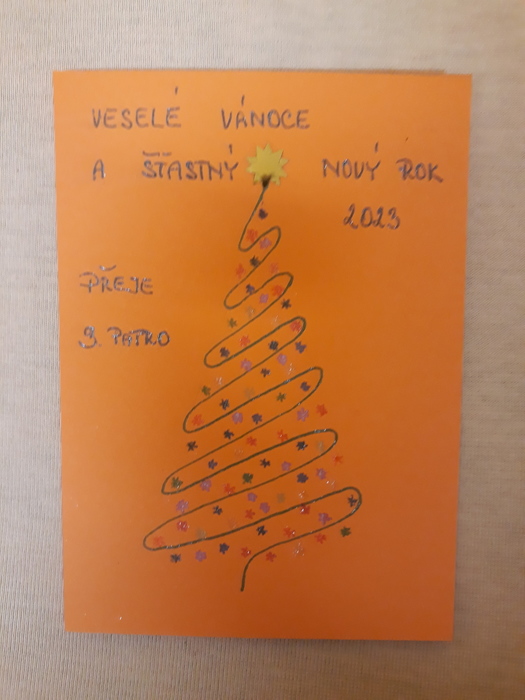 VESELÉ VÁNOCE
A ŠŤASTNÝ NOVÝ ROK
2023
PŘEJE
9. PATRO